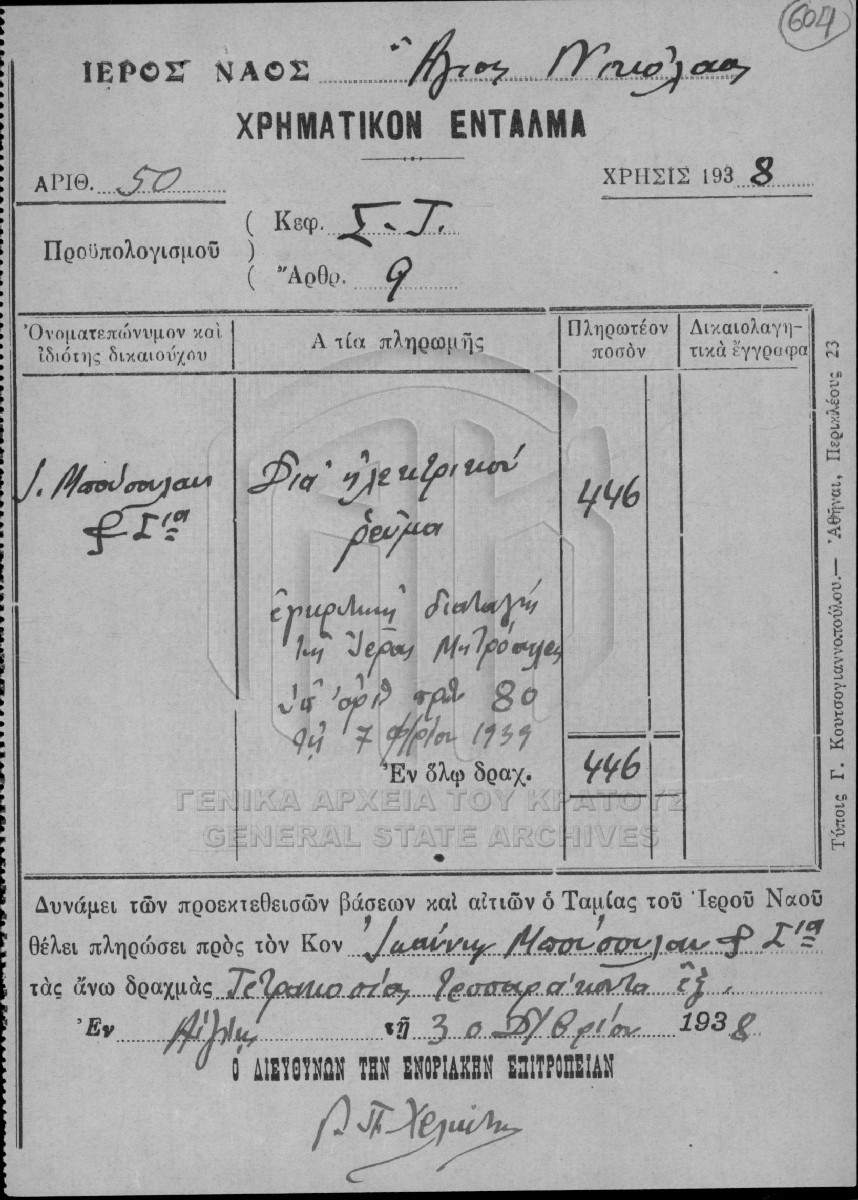 604
ΙΕΡΟΣ ΝΑΟΣ Ἅγιος Νικόλαος
ΧΡΗΜΑΤΙΚΟΝ ΕΝΤΑΛΜΑ
ΑΡΙΘ. 50
ΧΡΗΣΙΣ 1938
Προϋπολογισμοῦ
Κεφ. Σ-Τ.
Ἄρθρ. 9
Ὀνοματεπώνυμον καὶ ἰδιότης δικαιούχου
Α τία πληρωμῆς
Πληρωτέον ποσὸν
Δικαιολαγητικὰ ἔγγραφα
Ι. Μπούσουλας & Σία
Διὰ ἠλεκτρικοῦ
ῥεῦμα
446
ἐγκριτικὴ διαταγή
τῆς Ἱερᾶς Μητρόπολες
ὑπ' ἀριθ πρωτ 80
τῇ 7 Φ/ρίου 1939
Ἐν ὅλῳ δραχ. 446
ΓΕΝΙΚΑ ΑΡΧΕΙΑ ΤΟΥ ΚΡΑΤΟΥΣ
GENERAL STATE ARCHIVES
Δυνάμει τῶν προεκτεθεισῶν βάσεων καὶ αἰτιῶν ὁ Ταμίας τοῦ Ἱεροῦ Ναοῦ
θέλει πληρώσει πρὸς τὸν Κον Ἰωάννην Μπούσουλαν & Σία
τὰς ἄνω δραχμὰς Τετρακοσίας τεσσαράκοντα ἓξ.
Ἐν τῇ 30 1938
Ὁ ΔΙΕΥΘΥΝΩΝ ΤΗΝ ΕΝΟΡΙΑΚΗΝ ΕΠΙΤΡΟΠΕΙΑΝ
Τύποις Γ. Κουτσογιαννοπούλου.— Ἀθῆναι, Περικλέους 23